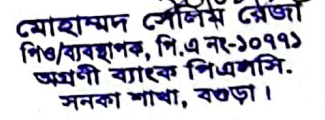 মোহাম্মদ সেলিম রেজা
পিও/ব্যবস্থাপক, পি.এ নং-১০৭৭১
অগ্রণী ব্যাংক পিএলসি.
সনকা শাখা, বগুড়া।